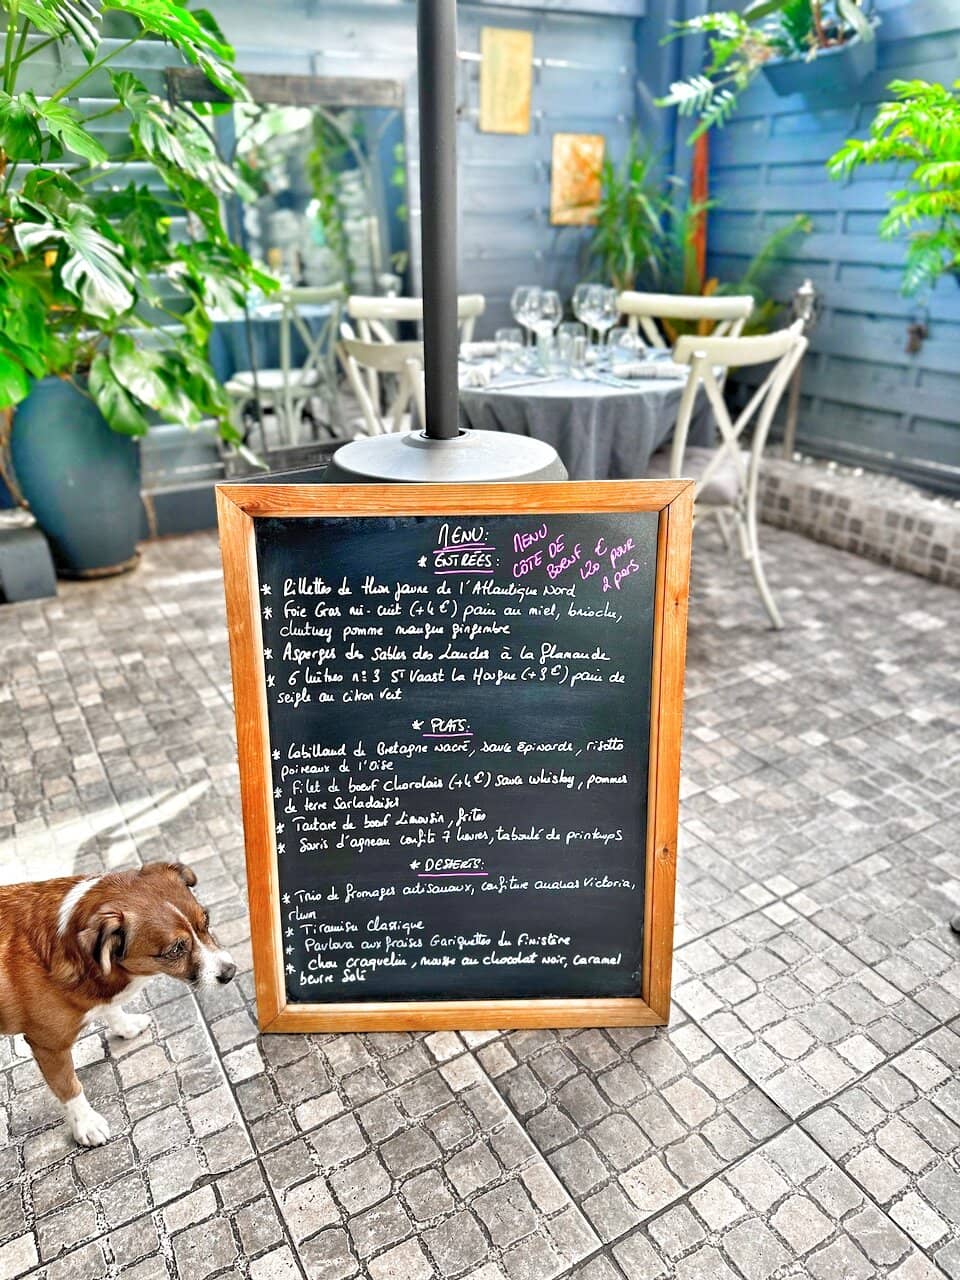 MENU:
* ENTRÉES:
MENU
CÔTE DE
BOEUF €
120 POUR
2 pers.
* Rillettes de thon jaune de l'Atlantique Nord
* Foie Gras mi-cuit (+4€) pain au miel, brioche,
chutney pomme mangue gingembre
* Asperges des Sables des Landes à la flamande
* 6 huîtres n°3 ST Vaast La Hougue (+3€) pain de
seigle au citron vert
* PLATS:
* Cabillaud de Bretagne nacré, sauce épinards, risotto
poireaux de l'Oise
* Filet de boeuf charolais (+4€) sauce whisky, pommes
de terre Sarladaises
* Tartare de boeuf Limousin, frites
* Souris d'agneau confite 7 heures, taboulé de printemps
* DESSERTS:
* Trio de fromages artisanaux, confiture ananas Victoria,
rhum
* Tiramisu Classique
* Pavlova aux fraises Gariguettes du Finistère
* Chou craquelin, mousse au chocolat noir, caramel
beurre salé